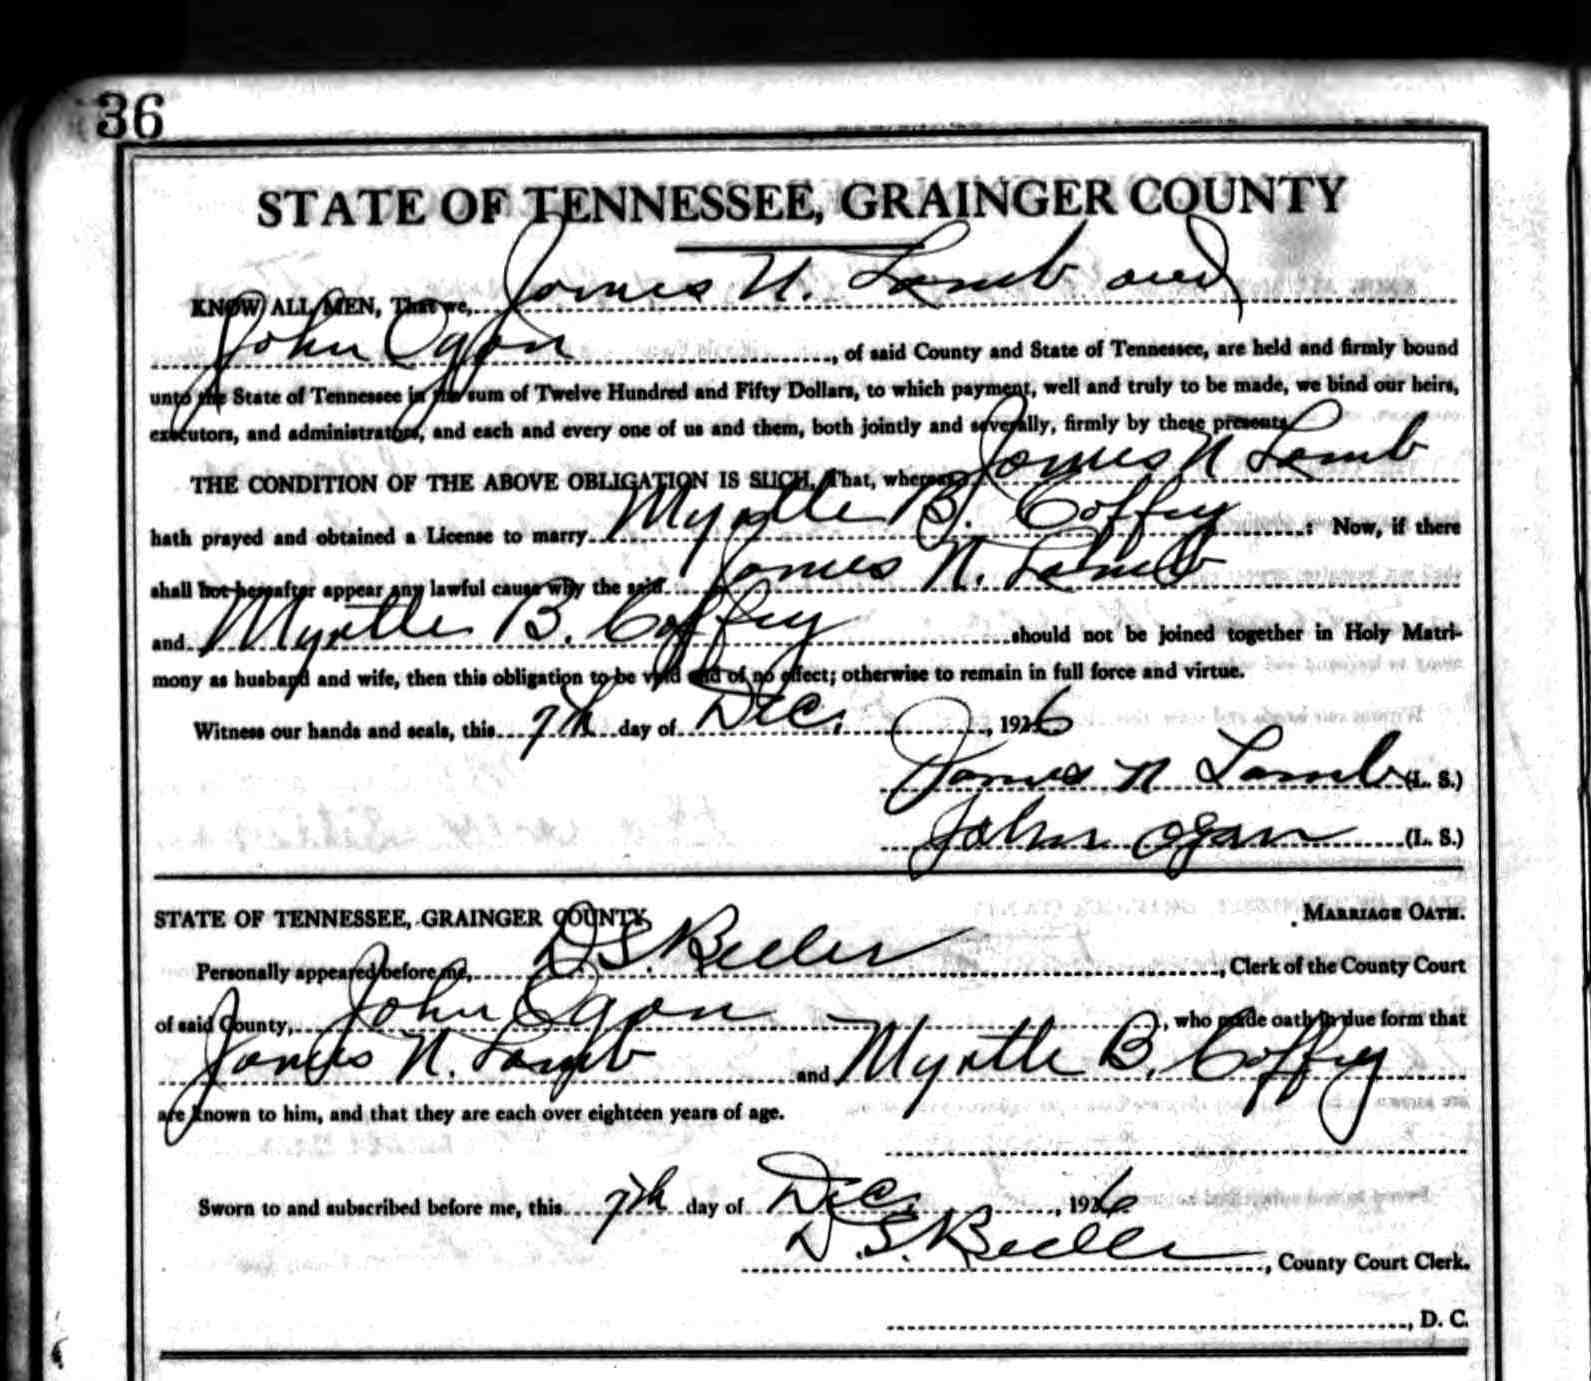 36
STATE OF TENNESSEE, GRAINGER COUNTY
KNOW ALL MEN, That we, James N. Lamb and
John Ogan, of said County and State of Tennessee, are held and firmly bound
unto the State of Tennessee in the sum of Twelve Hundred and Fifty Dollars, to which payment, well and truly to be made, we bind our heirs,
executors, and administrators, and each and every one of us and them, both jointly and severally, firmly by these presents.
THE CONDITION OF THE ABOVE OBLIGATION IS SUCH, That, whereas James N Lamb
hath prayed and obtained a License to marry Myrtle B. Coffey: Now, if there
shall not hereafter appear any lawful cause why the said James N. Lamb
and Myrtle B. Coffey should not be joined together in Holy Matri-
mony as husband and wife, then this obligation to be void and of no effect; otherwise to remain in full force and virtue.
Witness our hands and seals, this 7th day of Dec., 1926
James N Lamb (L. S.)
John Ogan (L. S.)
STATE OF TENNESSEE, GRAINGER COUNTY. MARRIAGE OATH.
Personally appeared before me, D. S. Beeler, Clerk of the County Court
of said County, John Ogan, who made oath in due form that
James N. Lamb and Myrtle B. Coffey
are known to him, and that they are each over eighteen years of age.
Sworn to and subscribed before me, this 7th day of Dec., 1926
D. S. Beeler, County Court Clerk.
, D. C.